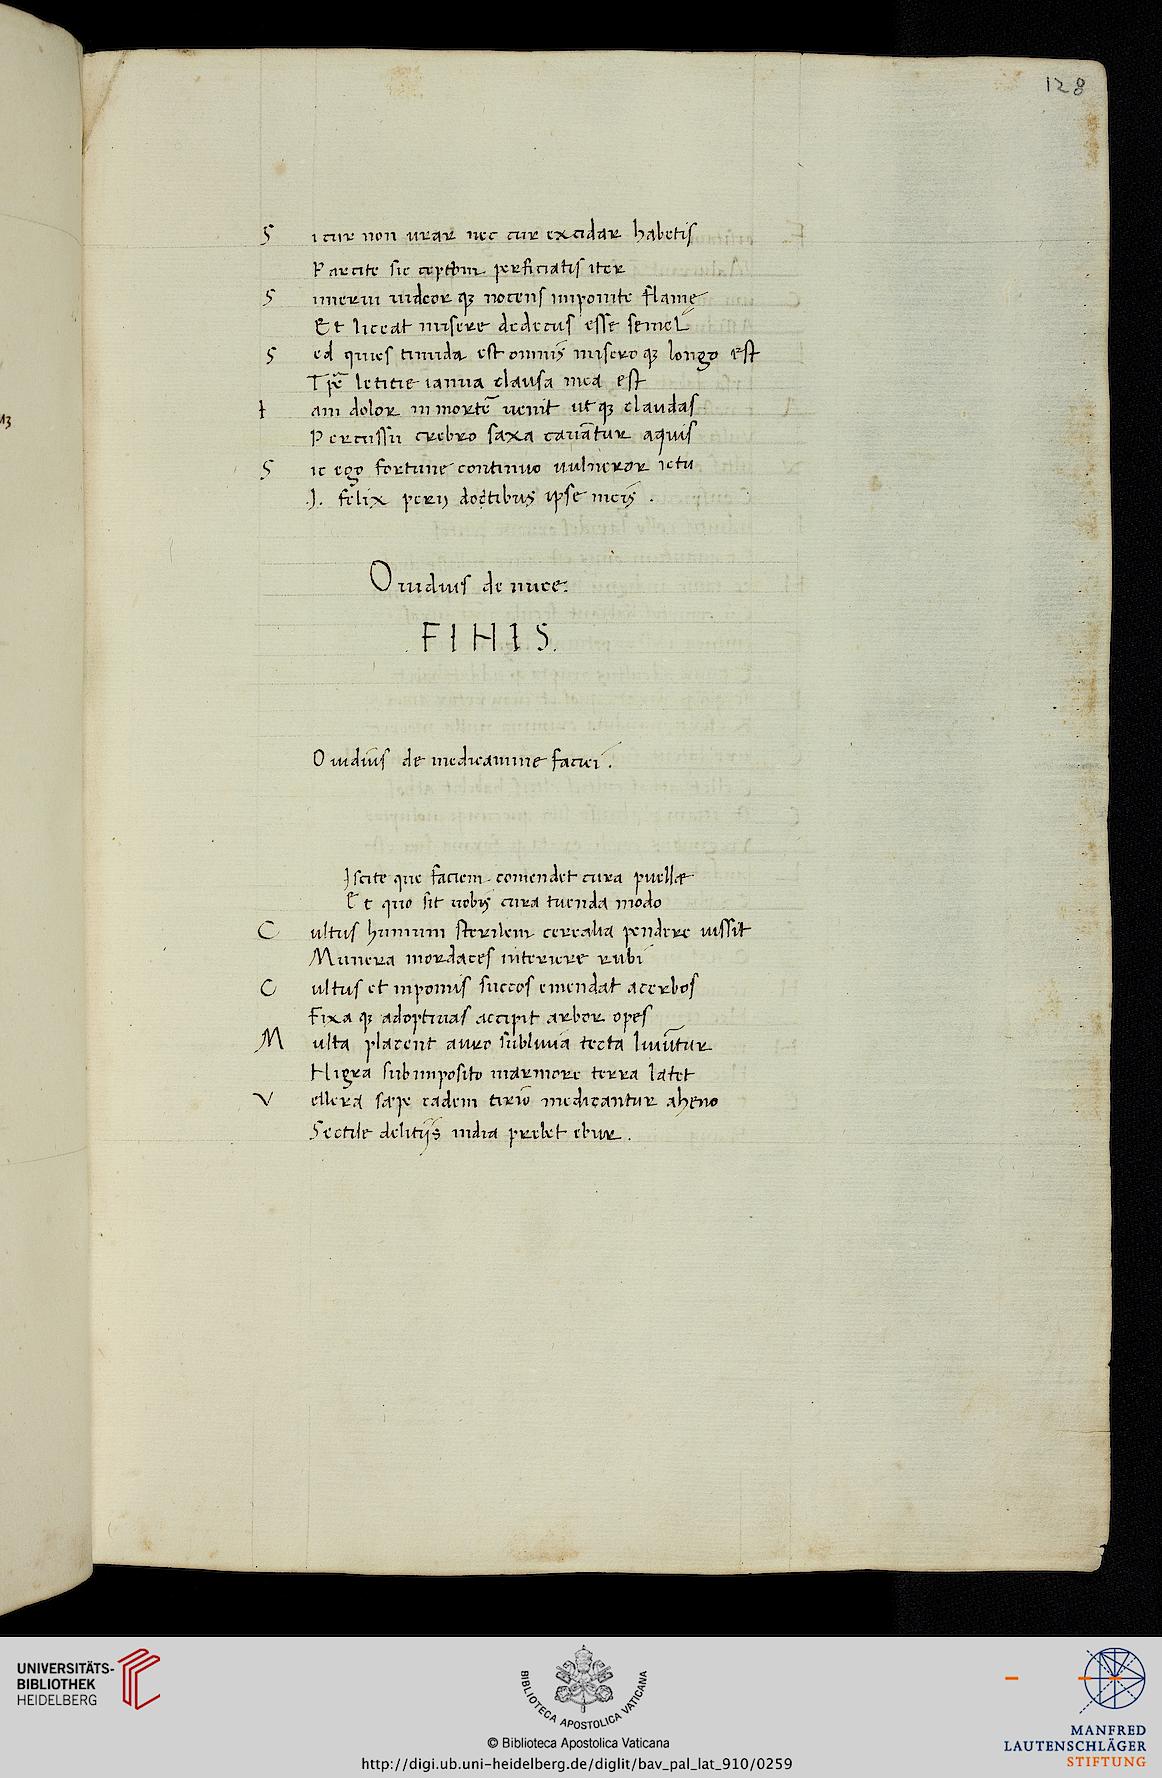 128
S i cur non urar nec cur excidar habetis
Parcite sic ceptum perficiatis iter
S inmerui uideor qz nocens imponite flamę
Et liceat misere dedecus esse semel
S ed quies timida est omnis misero qz longo est
Tpē letitie ianua clausa mea est
I am dolor in mortē uenit ut qz claudas
Percussu crebro saxa cauātur aquis
S ic ego fortune continuo uulneror ictu
.I. felix perij doctibus ipse meis .
Ouidius de nuce:
FINIS.
Ouidius de medicamine faciei.
Iscite que faciem comendet cura puellæ
Et quo sit uobis cura tuenda modo
C ultus humum sterilem cerealia pendere iussit
Munera mordaces interiere rubi
C ultus et in pomis succos emendat acerbos
Fixa qz adoptiuas accipit arbor opes
M ulta placent auro sublimia tecta linūtur
Nigra sub imposito marmore terra latet
V ellera sæpe eadem tirio medicantur aheno
Sectile delitijs india prebet ebur .
UNIVERSITÄTS-
BIBLIOTHEK
HEIDELBERG
BIBLIOTECA APOSTOLICA VATICANA
© Biblioteca Apostolica Vaticana
http://digi.ub.uni-heidelberg.de/diglit/bav_pal_lat_910/0259
MANFRED
LAUTENSCHLÄGER
STIFTUNG